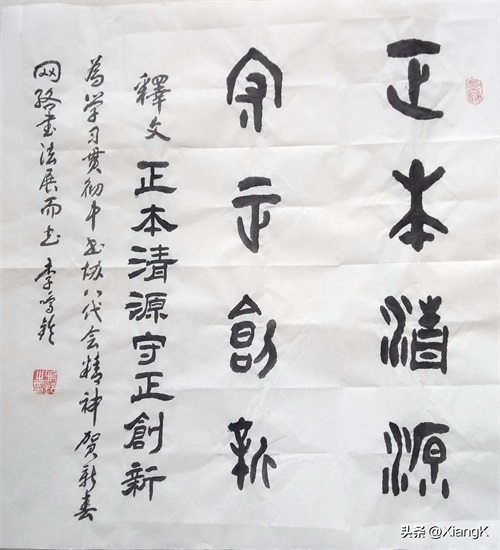 正本清源
守正創新
釋文 正本清源守正創新
為学习贯彻中书协八代会精神贺新春
网络书法展而书 李鸣铃
头条 @XiangK